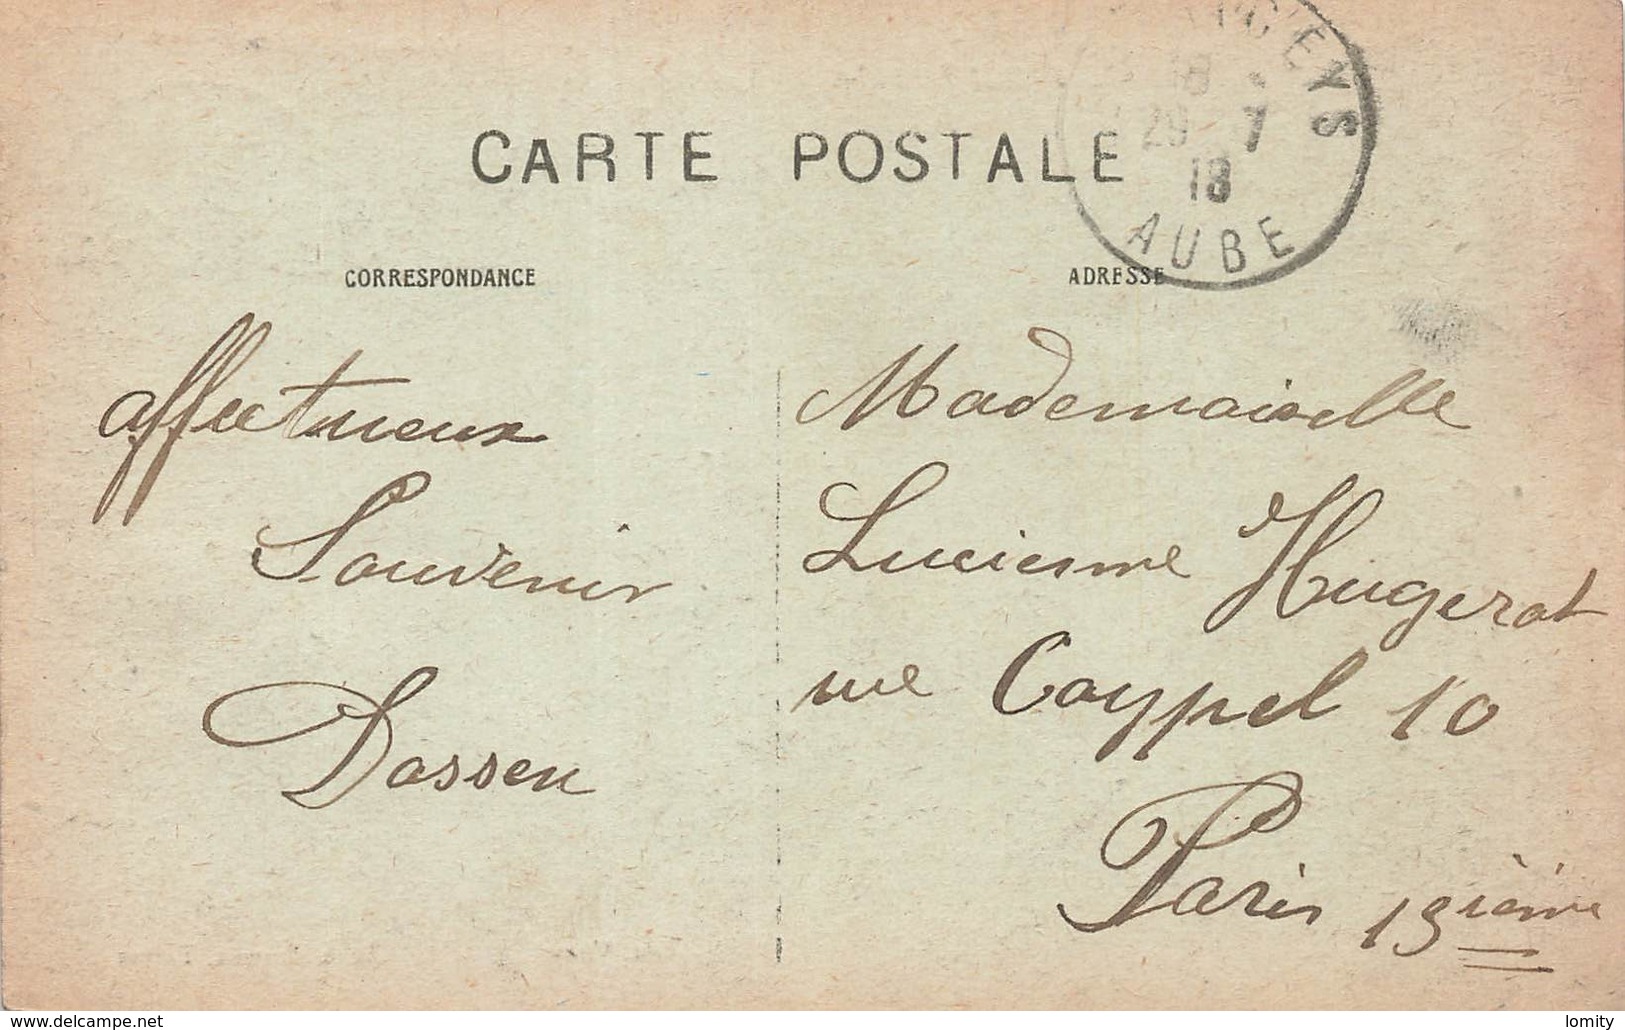 CARTE POSTALE
18
29 7
18
AUBE
CORRESPONDANCE
ADRESSE
affectueux
Souvenir
Dossen
Mademoiselle
Lucienne Hugerot
rue Coypel 10
Paris 13ième
www.delcampe.net
lomity